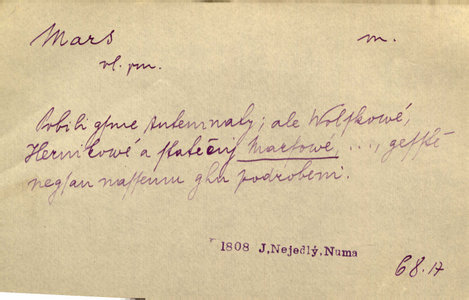 Mars m.
vl. jm.
Pobili gsme Antemnaty; ale Wolskowé,
Hernikowé a statečnj Martowé, ..., gesstě
negsau nassemu ghu podrobeni.
1808 J. Nejedlý, Numa
68.17